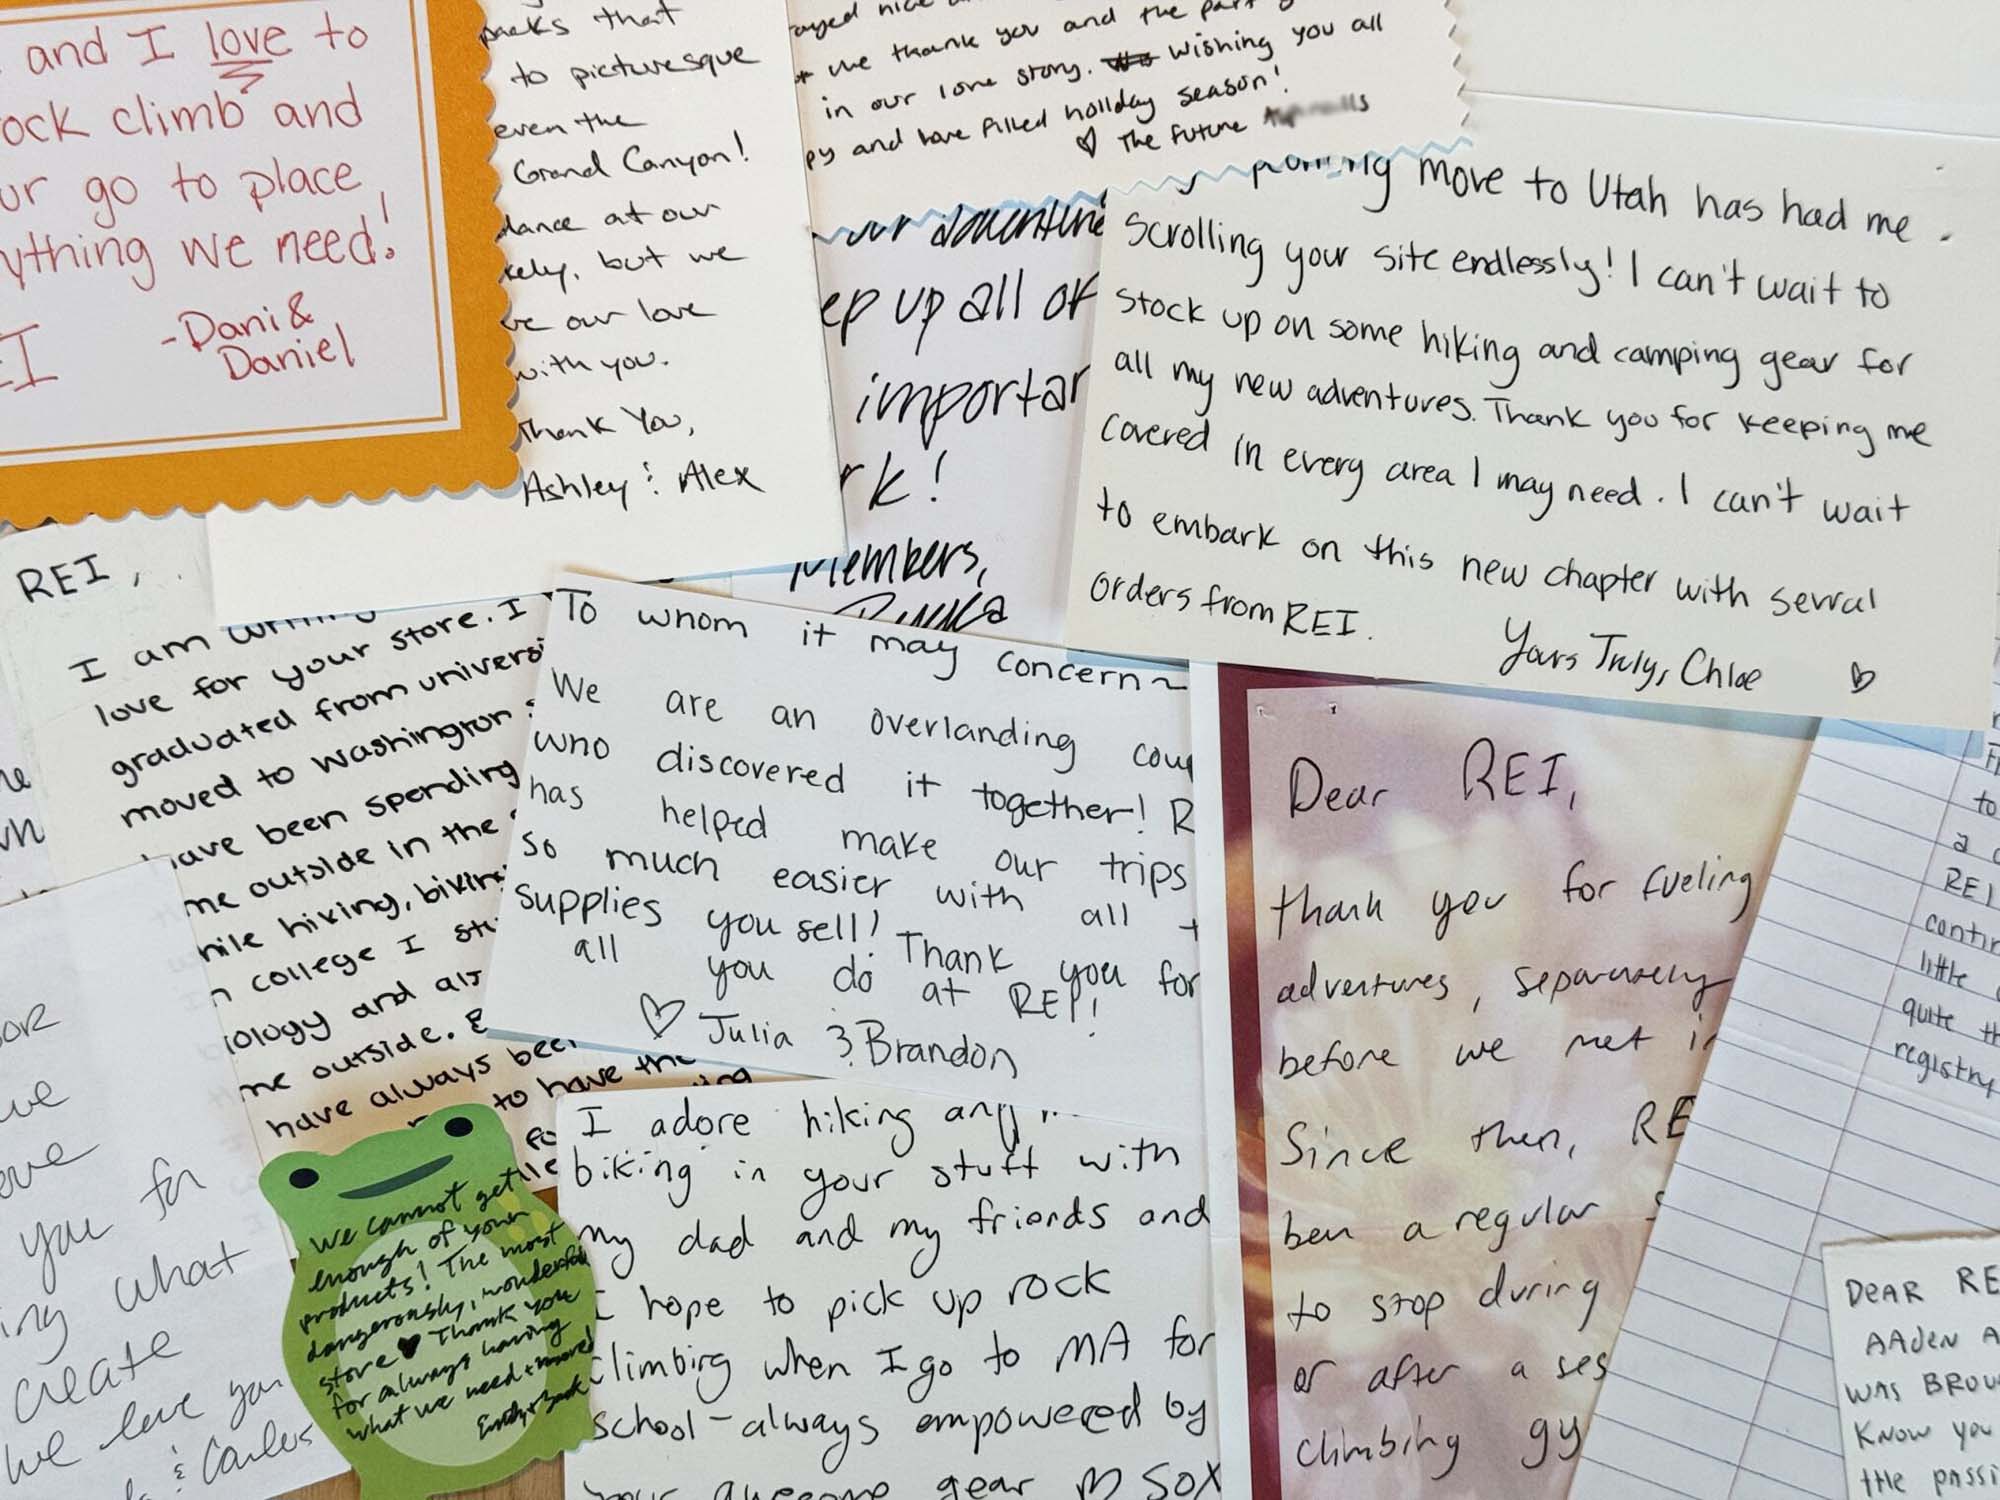 and I love to
ock climb and
ur go to place,
ything we need!
EI
-Dani &
Daniel
packs that
to picturesque
even the
Grand Canyon!
dance at our
kely, but we
ve our love
with you.
Thank You,
Ashley & Alex
ayed nice
we thank you and the part
in our love story. Wishing you all
py and love filled holiday season!
♡ The Future
our adventure
ep up all of
importan
rk!
Members,
move to Utah has had me
scrolling your site endlessly! I can't wait to
stock up on some hiking and camping gear for
all my new adventures. Thank you for keeping me
covered in every area I may need. I can't wait
to embark on this new chapter with serval
orders from REI.
Yours Truly, Chloe ♡
REI,
I am writing
love for your store. I
graduated from universi
moved to Washington
have been spending
me outside in the
hile hiking, biking
n college I stu
iology and als
me outside.
have always been
to have the
To whom it may concern~
We are an overlanding cou
who discovered it together! R
has helped make our trips
so much easier with all t
supplies you sell! Thank you for
all you do at REI!
♡ Julia & Brandon
Dear REI,
thank you for fueling
adventures, separately
before we met in
Since then, RE
ben a regular s
to stop during
or after a ses
climbing gy
to
a
REI
contin
little
quite th
registry
DEAR RE
AADEN A
WAS BROU
KNOW YOU
THE PASSI
I adore hiking and
biking in your stuff with
my dad and my friends and
I hope to pick up rock
climbing when I go to MA for
school - always empowered by
your awesome gear ♡ SOX
We cannot get
enough of your
products! The most
dangerously, wonderful
store ♥ Thank you
for always having
what we need + more!
or
we
ove
you for
ing what
create
We love you
& Carlos